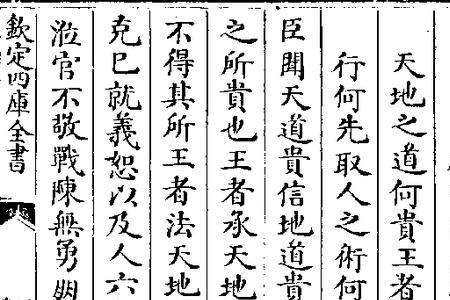 天地之道何貴王者
行何先取人之術何
臣聞天道貴信地道貴
之所貴也王者承天地
不得其所王者法天地
克己就義恕以及人六
涖官不敬戰陳無勇㛰
欽定四庫全書